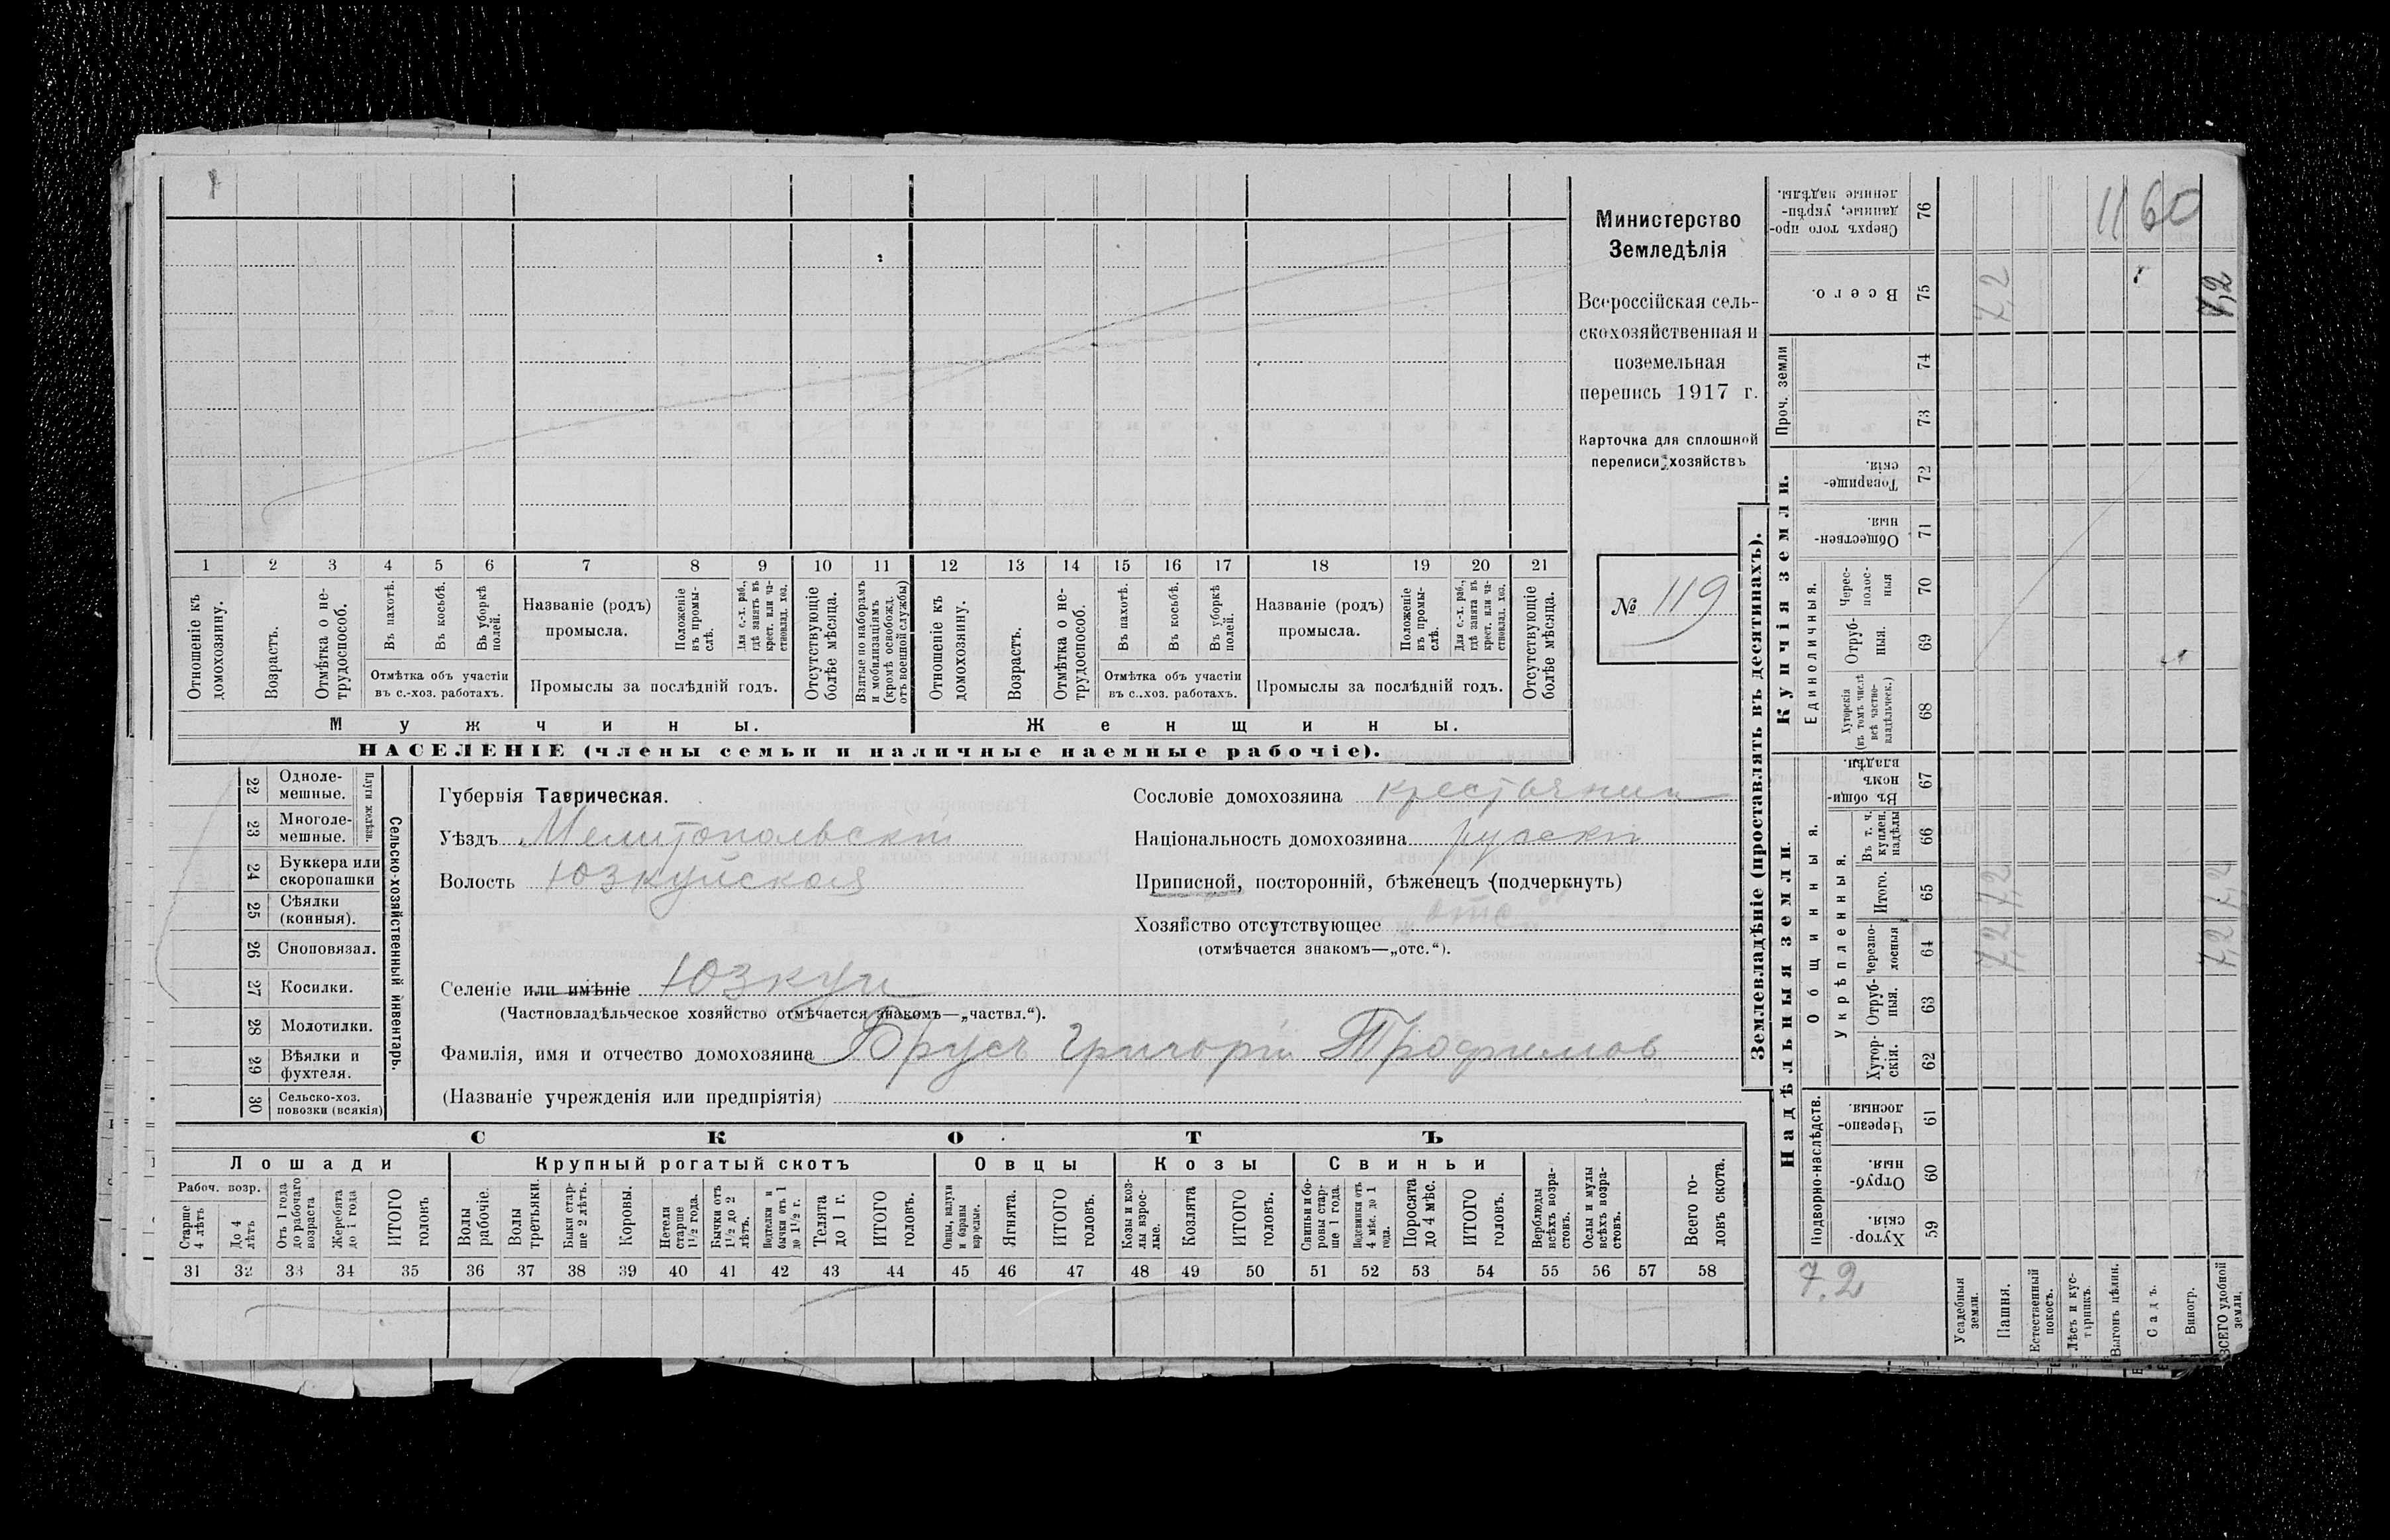 1160
Министерство
Земледѣлія
Всероссійская сель-
скохозяйственная и
поземельная
перепись 1917 г.
Карточка для сплошной
переписи хозяйствъ
№ 119
1 2 3 4 5 6 7 8 9 10 11 12 13 14 15 16 17 18 19 20 21
Отношеніе къ домохозяину.
Возрастъ.
Отмѣтка о не-трудоспособ.
Въ пахотѣ.
Въ косьбѣ.
Въ уборкѣ полей.
Отмѣтка объ участіи
въ с.-хоз. работахъ.
Названіе (родъ)
промысла.
Положеніе въ промы-слѣ.
Для с.-х. раб., гдѣ занятъ въ крест. или ча-стновлад. хоз.
Промыслы за послѣдній годъ.
Отсутствующіе болѣе мѣсяца.
Взятые по наборамъ и мобилизаціямъ (кромѣ освобожд. отъ военной службы)
Отношеніе къ домохозяину.
Возрастъ.
Отмѣтка о не-трудоспособ.
Въ пахотѣ.
Въ косьбѣ.
Въ уборкѣ полей.
Отмѣтка объ участіи
въ с.-хоз. работахъ.
Названіе (родъ)
промысла.
Положеніе въ промы-слѣ.
Для с.-х. раб., гдѣ занята въ крест. или ча-стновлад. хоз.
Промыслы за послѣдній годъ.
Отсутствующіе болѣе мѣсяца.
Мужчины.
Женщины.
НАСЕЛЕНІЕ (члены семьи и наличные наемные рабочіе).
22 Одноле-мешные.
23 Многоле-мешные.
Плуги желѣзн.
24 Буккера или скоропашки
25 Сѣялки (конныя).
26 Сноповязал.
27 Косилки.
28 Молотилки.
29 Вѣялки и фухтеля.
30 Сельско-хоз. повозки (всякія)
Сельско-хозяйственный инвентарь.
Губернія Таврическая.
Уѣздъ Мелитопольскій
Волость Юзкуйская
Сословіе домохозяина крестьянин
Національность домохозяина русскій
Приписной, посторонній, бѣженецъ (подчеркнуть)
Хозяйство отсутствующее отс
(отмѣчается знакомъ—„отс.“).
Селеніе или имѣніе Юзкуи
(Частновладѣльческое хозяйство отмѣчается знакомъ—„частвл.“).
Фамилія, имя и отчество домохозяина Брусъ Григорій Трофимов
(Названіе учрежденія или предпріятія)
СКОТЪ
Лошади
Крупный рогатый скотъ
Овцы
Козы
Свиньи
Рабоч. возр.
Старше 4 лѣтъ
До 4 лѣтъ
Отъ 1 года до рабочаго возраста
Жеребята до 1 года
ИТОГО головъ
Волы рабочіе.
Волы третьяки.
Быки стар-ше 2 лѣтъ.
Коровы.
Нетели старше 1½ года.
Бычки отъ 1½ до 2 лѣтъ.
Подтелки и бычки отъ 1 до 1½ г.
Телята до 1 г.
ИТОГО головъ.
Овцы, валухи и бараны взрослые.
Ягнята.
ИТОГО головъ.
Козы и коз-лы взрос-лые.
Козлята
ИТОГО головъ.
Свиньи и бо-ровы стар-ше 1 года.
Подсвинки отъ 4 мѣс. до 1 года.
Поросята до 4 мѣс.
ИТОГО головъ.
Верблюды всѣхъ возра-стовъ.
Ослы и мулы всѣхъ возра-стовъ.
Всего го-ловъ скота.
31 32 33 34 35 36 37 38 39 40 41 42 43 44 45 46 47 48 49 50 51 52 53 54 55 56 57 58
Землевладѣніе (проставлять въ десятинахъ).
Надѣльныя земли.
Купчія земли.
Проч. земли
Подворно-наслѣдств.
Общинныя.
Укрѣпленныя.
Единоличныя.
76 Сверхъ того про-данные, укрѣп-ленные надѣлы.
75 Всего. 7,2 7,2
74
73
72 Товарище-скія.
71 Обществен-ныя.
70 Черес-полос-ныя
69 Отруб-ныя.
68 Хуторскія (въ томъ числѣ всѣ частно-владѣльческ.)
67 Въ общи-номъ владѣн.
66 Въ т. ч. куплен. надѣлы
65 Итого. 7,2 7,2
64 Черезпо-лосныя 7,2 7,2
63 Отруб-ныя.
62 Хутор-скія.
61 Черезпо-лосныя.
60 Отруб-ныя.
59 Хутор-скія.
7.2
Усадебныя земли.
Пашня.
Естественный покосъ.
Лѣсъ и кус-тарникъ.
Выгонъ цѣлин.
Садъ.
Виногр.
ВСЕГО удобной земли.